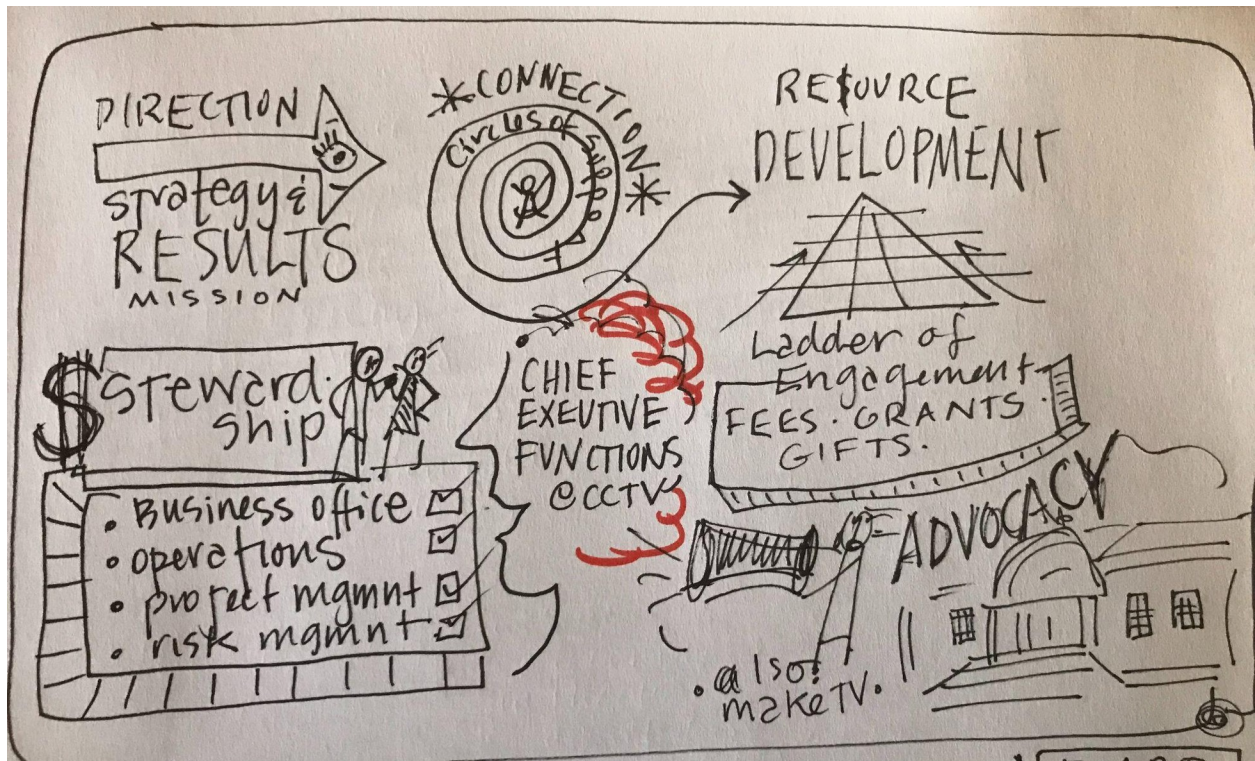 DIRECTION
strategy &
RESULTS
MISSION
*CONNECTION*
Circles of
RE$OURCE
DEVELOPMENT
Ladder of
Engagement
FEES. GRANTS.
GIFTS.
$ Steward.
ship
• Business office
• operations
• project mgmnt
• risk mgmnt
CHIEF
EXEUTIVE
FUNCTIONS
@CCTV
ADVOCACY
• also!
make TV.